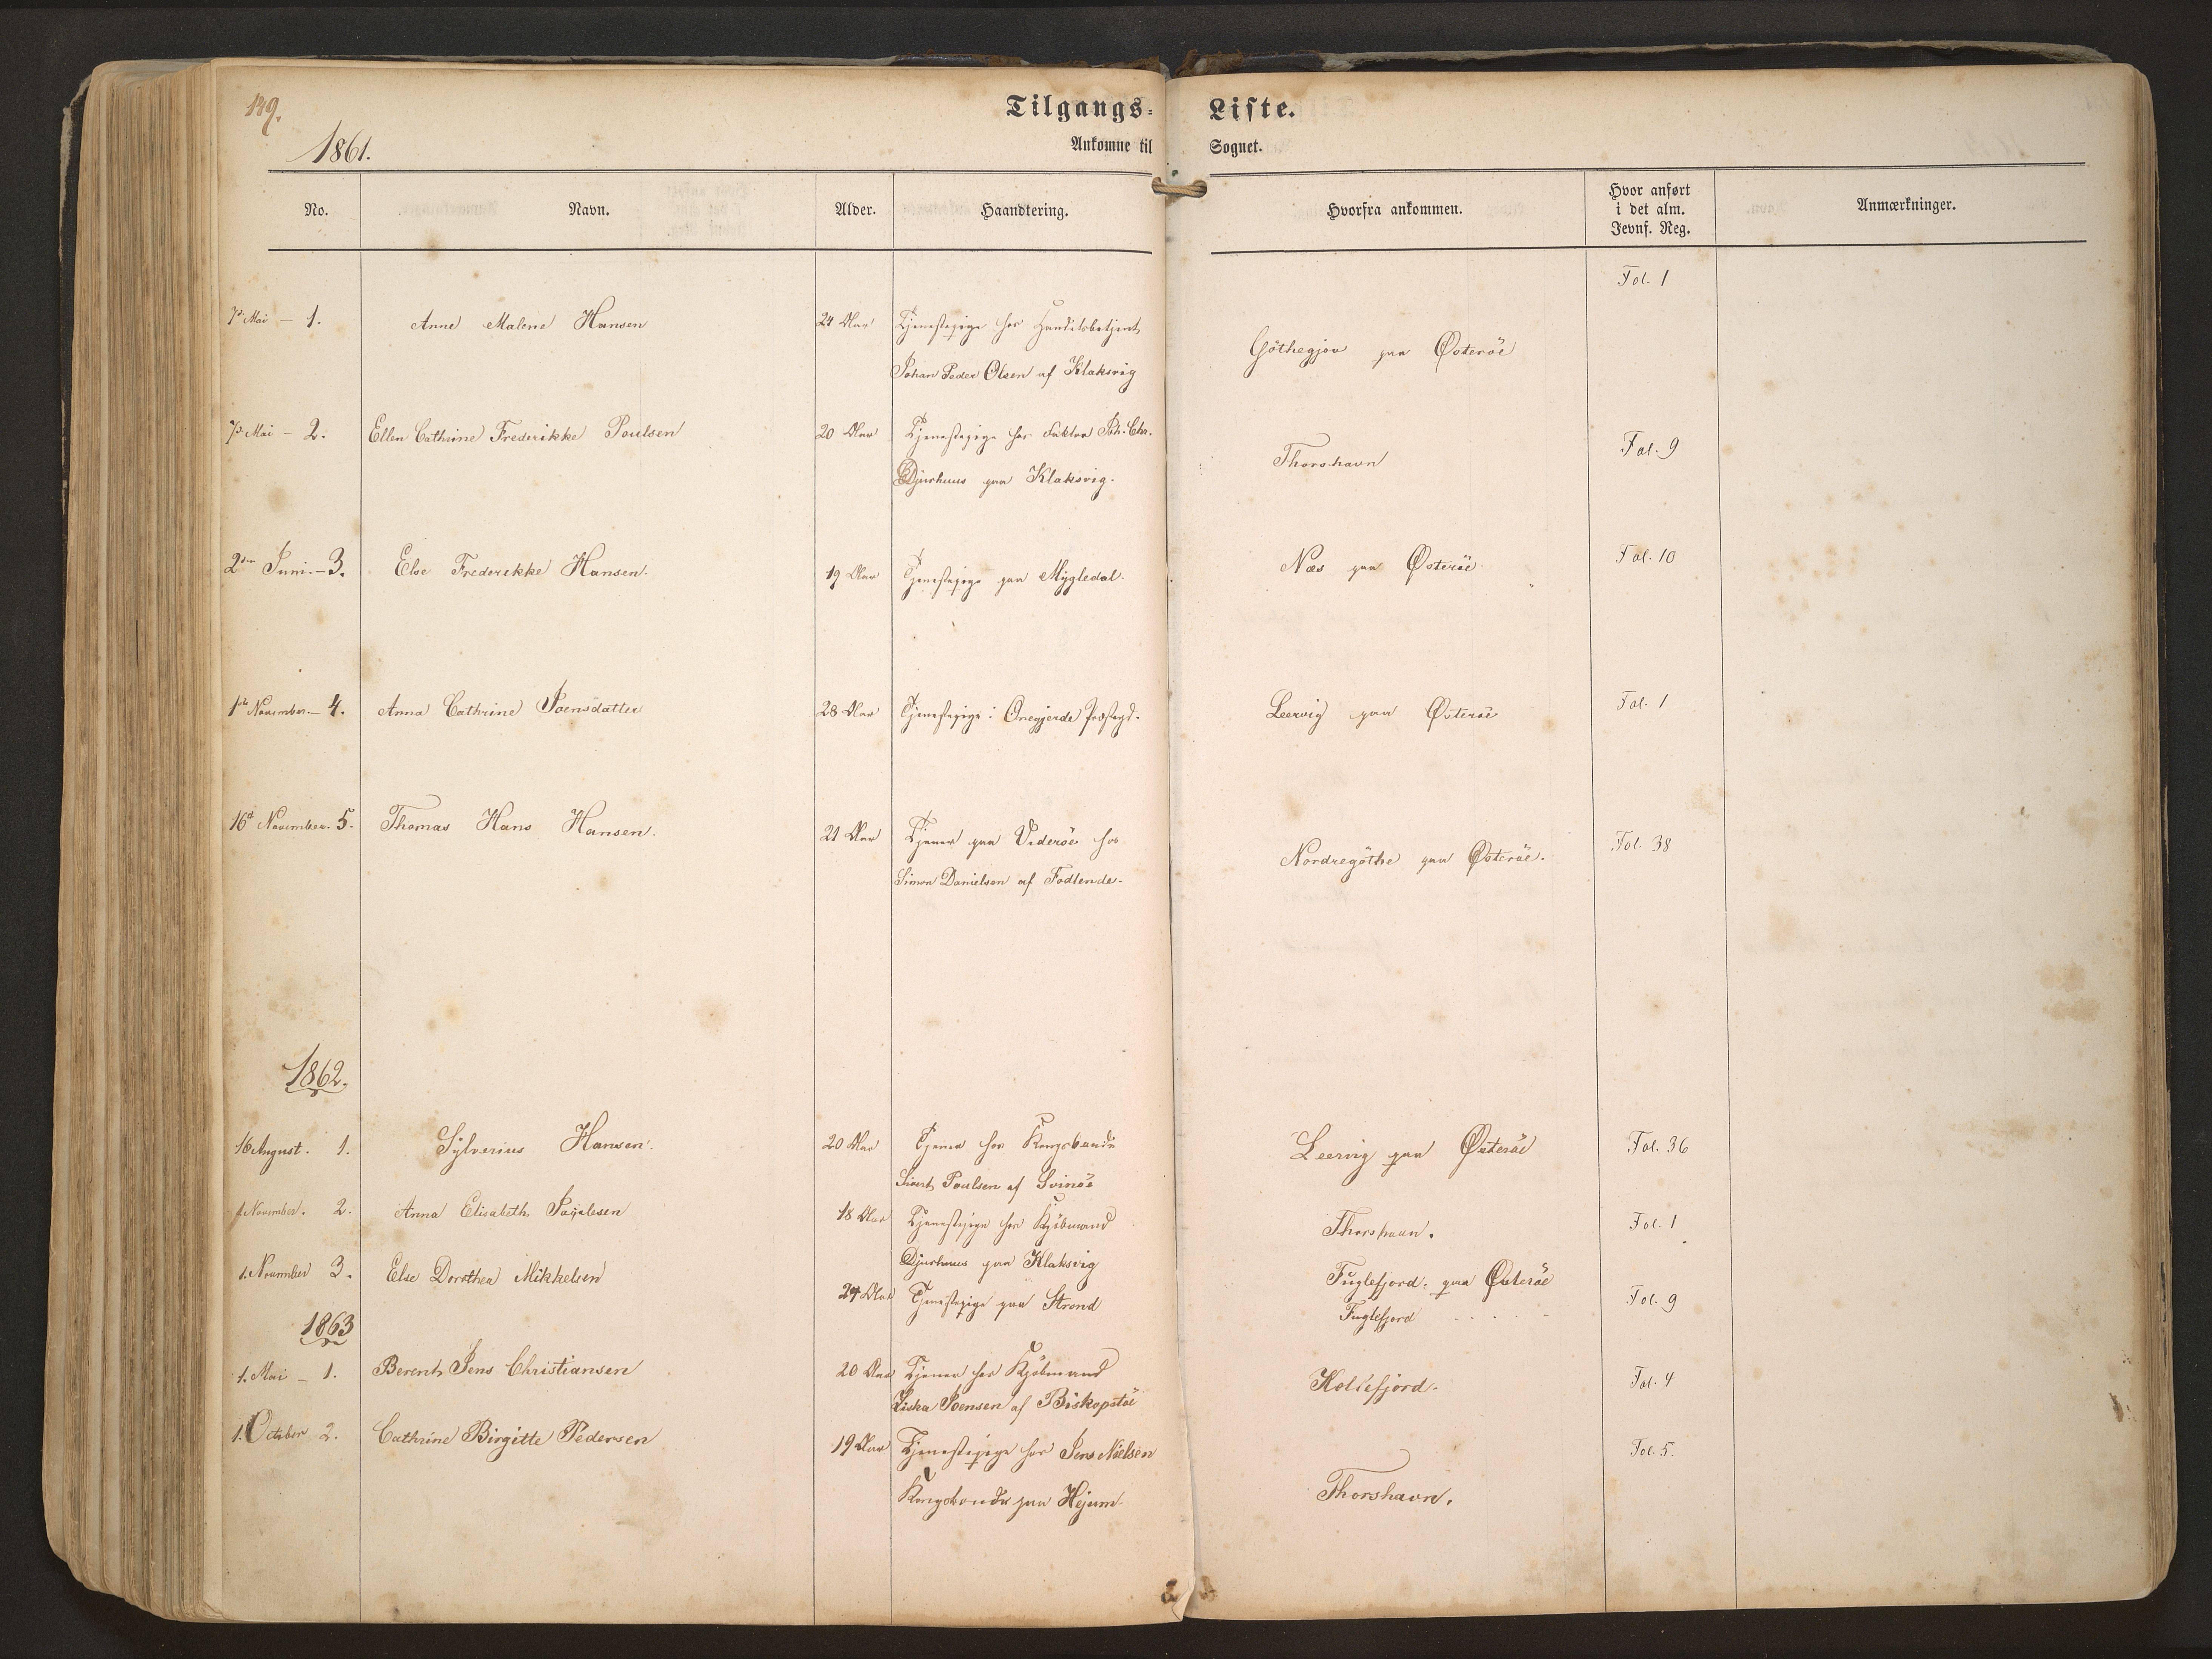 149.
Tilgangs= Liste.
1861.
Ankomne til Sognet.
No. Navn. Alder. Haandtering. Hvorfra ankommen. Hvor anført i det alm. Jevnf. Reg. Anmærkninger.
Fol. 1
Mai - 1. Anne Malene Hansen 24 Aar Tjenestepige hos Handelsbetjent
Johan Peder Olsen af Klaksvig Göthegjov paa Østeröe
Mai - 2. Ellen Cathrine Frederikke Poulsen 20 Aar Tjenestepige hos Faktor Joh. Chr.
Djurhuus paa Klaksvig. Thorshavn Fol. 9
2den Juni. - 3. Else Frederekke Hansen. 19 Aar Tjenestepige paa Mygledal. Næs paa Østeröe. Fol. 10
1ste November. - 4. Anna Cathrine Joensdatter 28 Aar Tjenestepige i Oneyjerde Leervig paa Østeröe Fol. 1
16d November. 5. Thomas Hans Hansen. 21 Aar Tjener paa Viderøe hos
Simon Danielsen af Nordregöthe paa Østeröe. Fol. 38
1862.
16 August. 1. Sylverius Hansen. 20 Aar Tjener hos Kongsbonde
Sivert Poulsen af Svinöe Leervig paa Østeröe Fol. 36
1 November. 2. Anna Elisabeth 18 Aar Tjenestepige hos Kjöbmand
Djurhuus paa Klaksvig Thorshavn. Fol. 1
1. November 3. Else Dorothea Mikkelsen 24 Aar Tjenestepige paa Strond Fuglefjord. paa Østeröe
Fuglefjord Fol. 9
1863
1. Mai - 1. Berent Jens Christiansen 20 Aar Tjener hos Kjöbmand
Joensen af Biskopstöe Kollefjord. Fol. 4
1. October 2. Cathrine Birgitte Pedersen 19 Aar Tjenestepige hos Jens Nielsen
Kongsbonde paa Hejum. Thorshavn. Fol. 5.